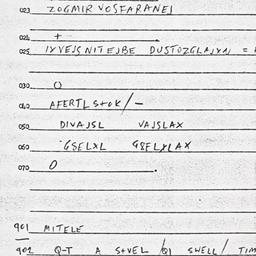 023 ZOGMIR VOSFARANEJ
024 +
025 IXVEJSNITEJBE DUSTOZGLAJXN =
030 O
040 AFERTLSTOK/-
050 DIVAJSL VAJSLAX
060 GSELXL GSELXLAX
070 O
901 MITELE
902 Q-T A STVEL /QI SWELL/ TIM